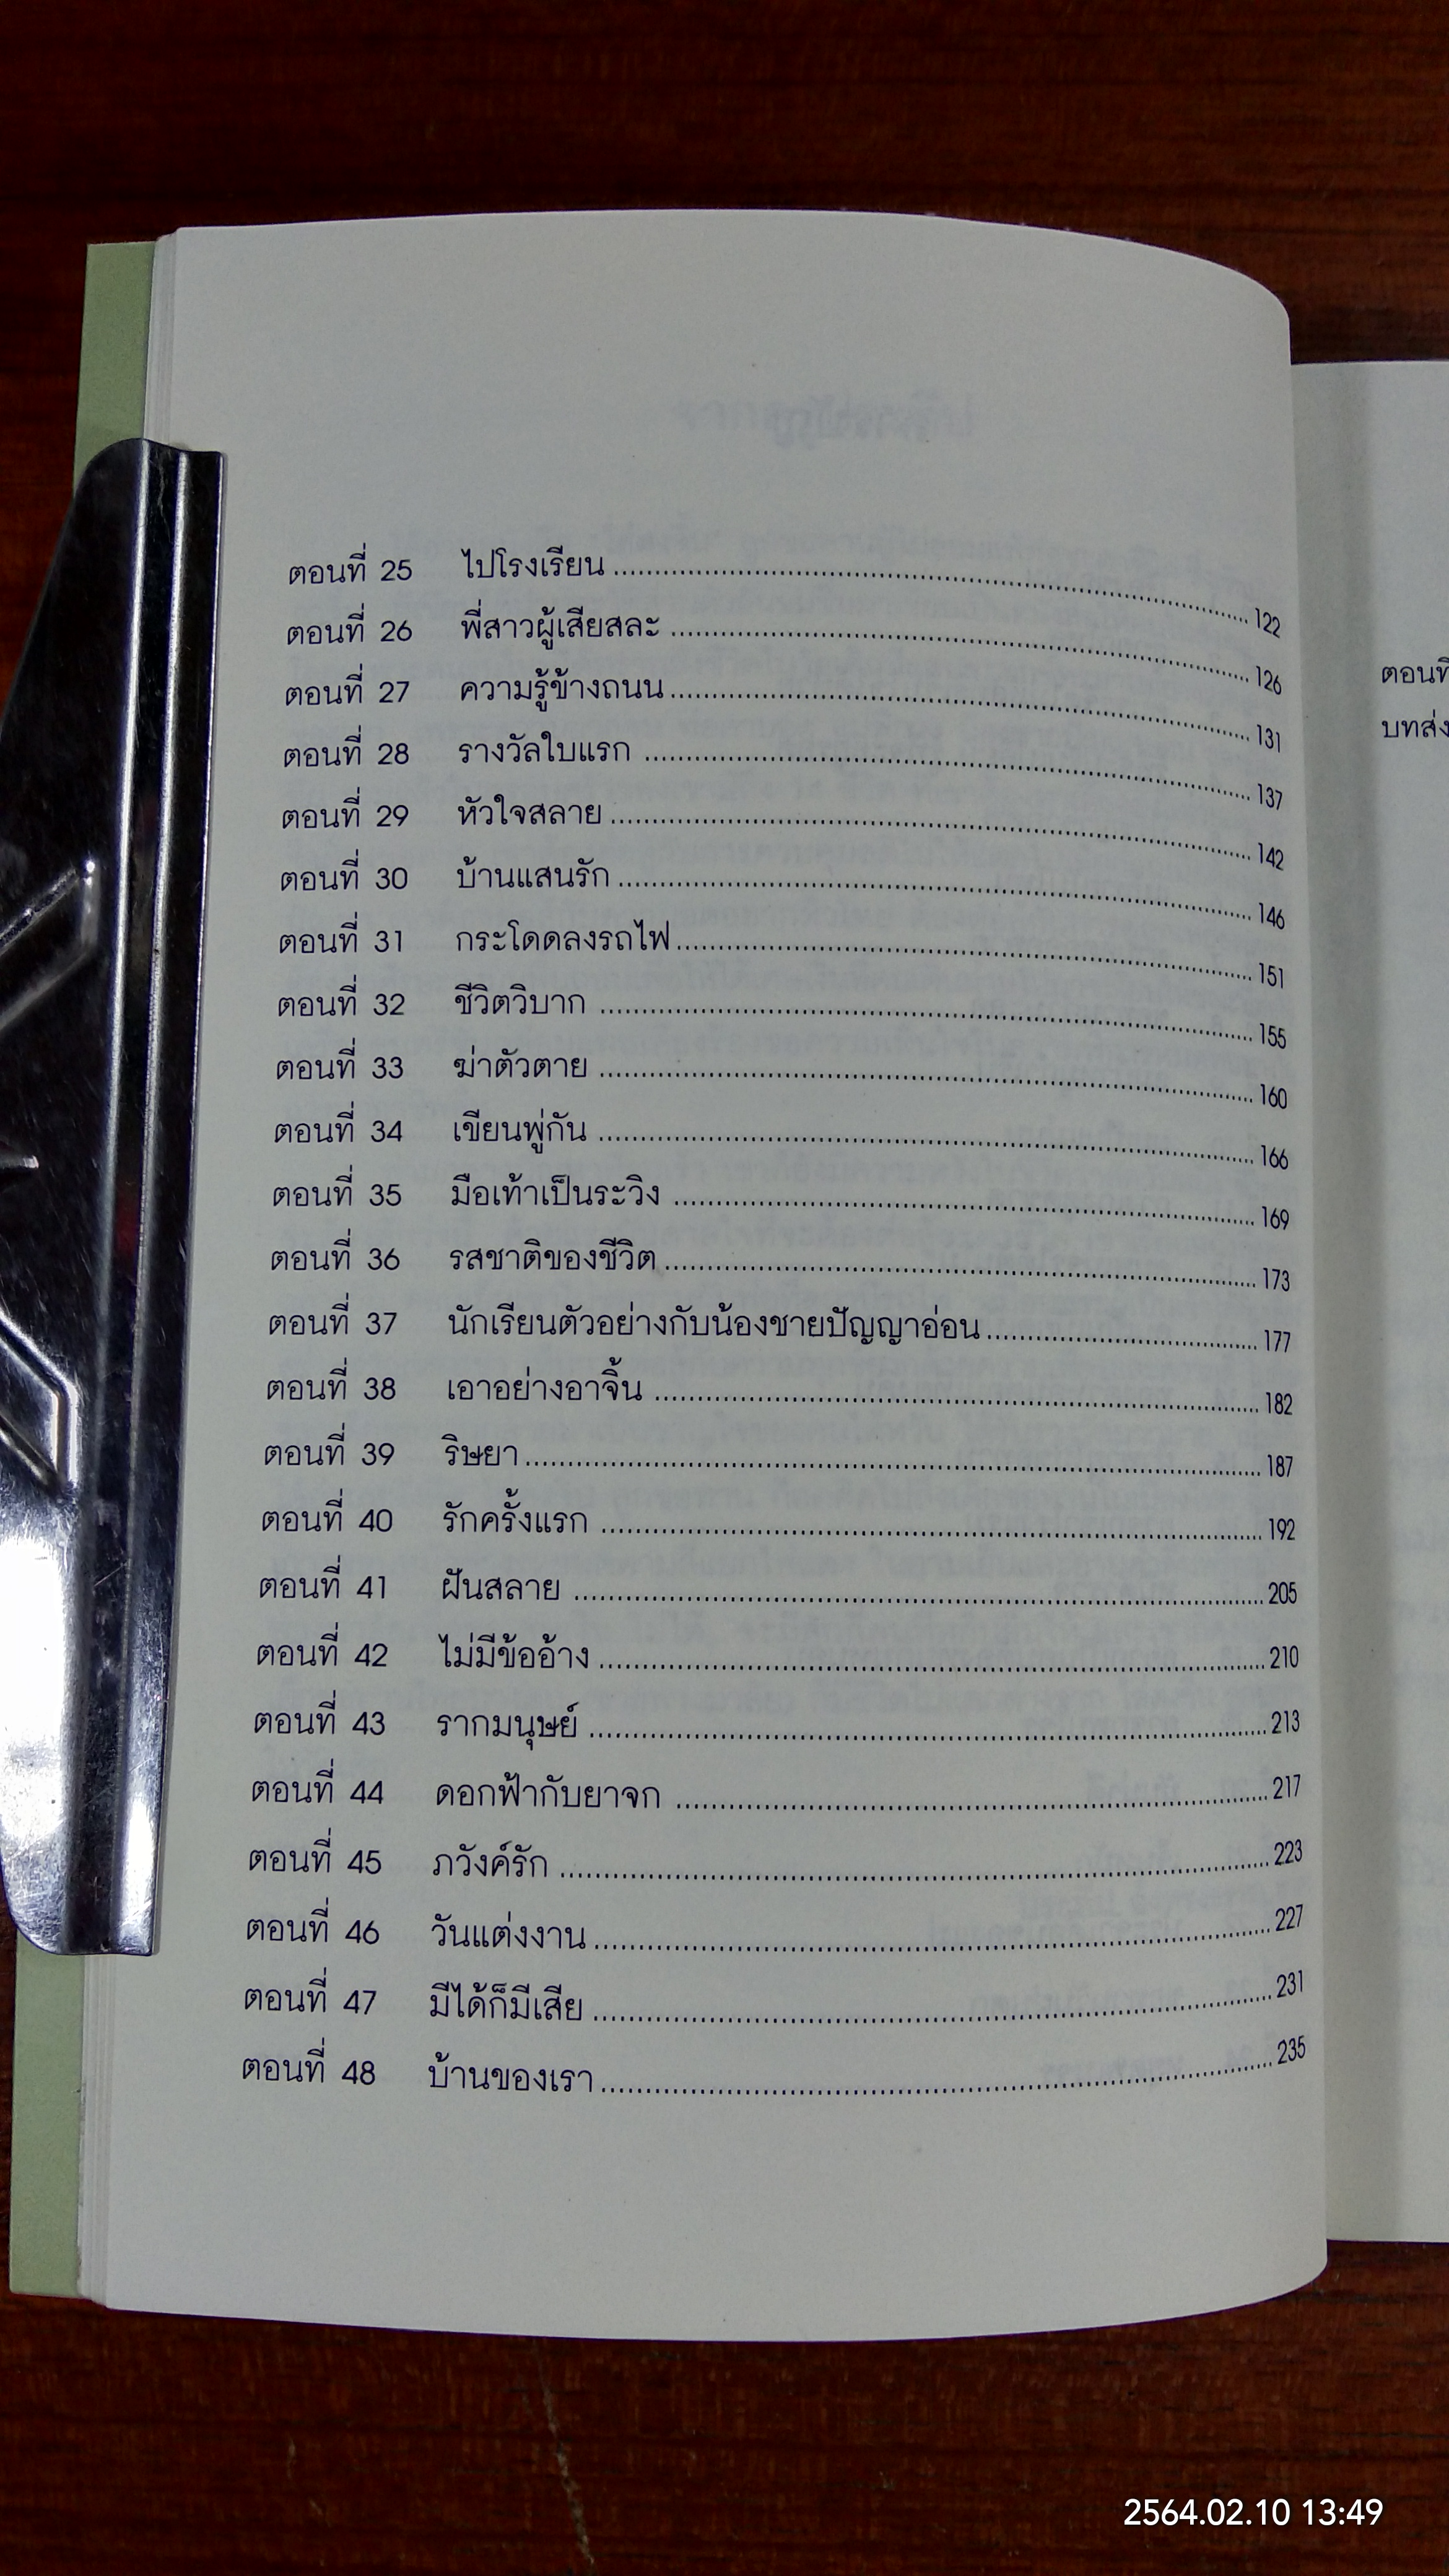 ตอนที่ 25 ไปโรงเรียน 122
ตอนที่ 26 พี่สาวผู้เสียสละ 126
ตอนที่ 27 ความรู้ข้างถนน 131
ตอนที่ 28 รางวัลใบแรก 137
ตอนที่ 29 หัวใจสลาย 142
ตอนที่ 30 บ้านแสนรัก 146
ตอนที่ 31 กระโดดลงรถไฟ 151
ตอนที่ 32 ชีวิตวิบาก 155
ตอนที่ 33 ฆ่าตัวตาย 160
ตอนที่ 34 เขียนพู่กัน 166
ตอนที่ 35 มือเท้าเป็นระวิง 169
ตอนที่ 36 รสชาติของชีวิต 173
ตอนที่ 37 นักเรียนตัวอย่างกับน้องชายปัญญาอ่อน 177
ตอนที่ 38 เอาอย่างอาจิ้น 182
ตอนที่ 39 ริษยา 187
ตอนที่ 40 รักครั้งแรก 192
ตอนที่ 41 ฝันสลาย 205
ตอนที่ 42 ไม่มีข้ออ้าง 210
ตอนที่ 43 รากมนุษย์ 213
ตอนที่ 44 ดอกฟ้ากับยาจก 217
ตอนที่ 45 ภวังค์รัก 223
ตอนที่ 46 วันแต่งงาน 227
ตอนที่ 47 มีได้ก็มีเสีย 231
ตอนที่ 48 บ้านของเรา 235
ตอนที่
บทส่ง
2564.02.10 13:49